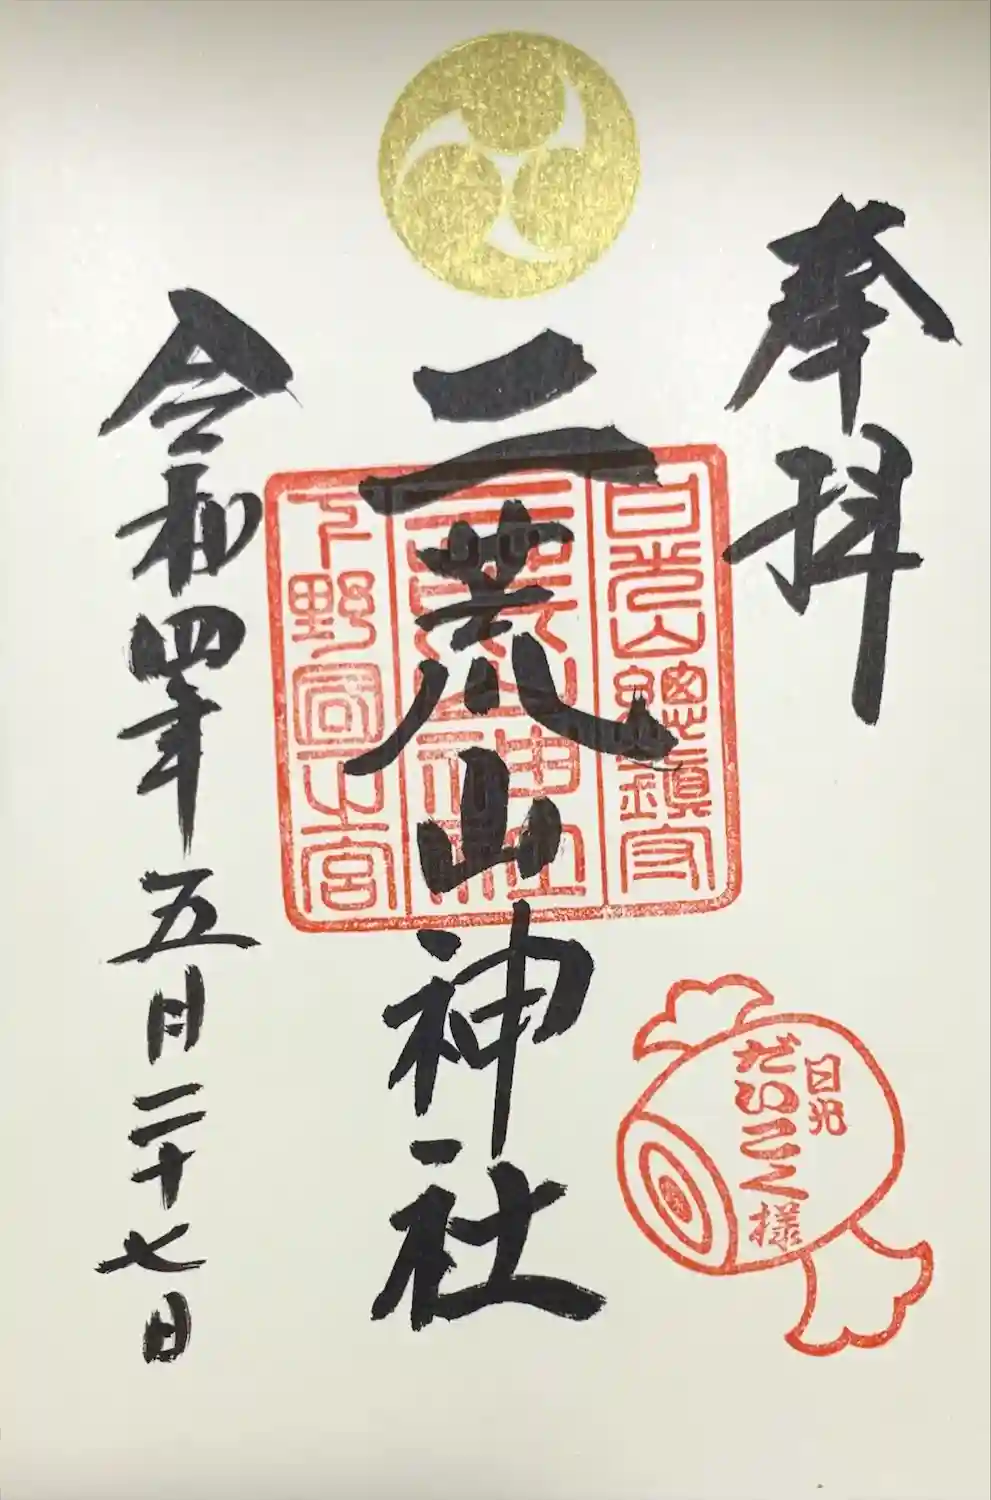 奉拝
日光山總鎮守
二荒山神社
下野國一之宮
二荒山神社
日光
だいこく様
令和四年五月二十七日